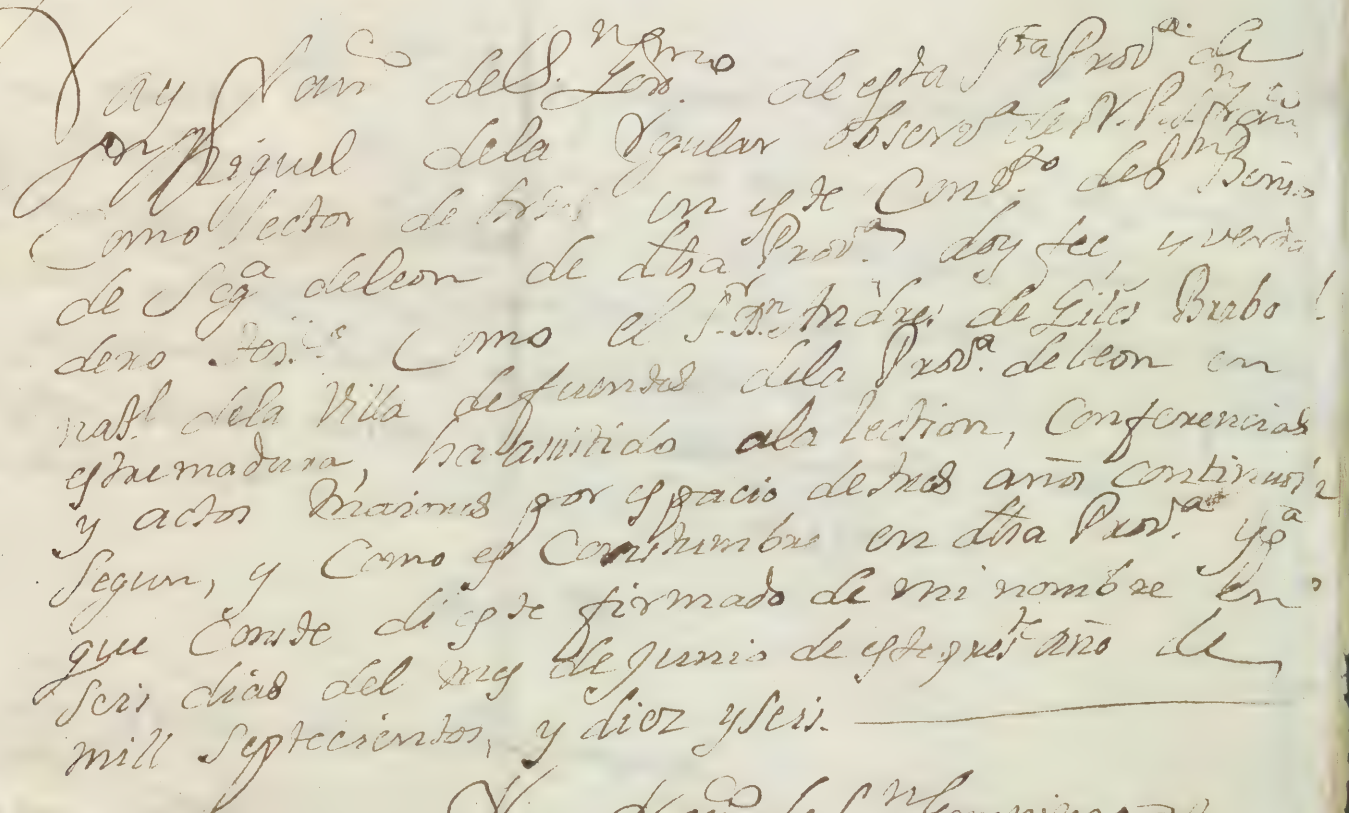 Fray Franco de S.n Geronmo de esta Sta Prova. de
Sn Miguel dela Regular observa de N. P. Sn Franco
Como lector de en este Convto. del
de Sega deleon de dha Prova. doy fee, y verda
dero Como el S.r D.n Andres de Giles Brabo
natl. dela Villa defuentes dela Prova. deleon en
estremadura, ha asistido ala lection, Conferencias
y actos Maiores por espacio detres años continuos
segun, y Como es Constumbre en dha Prova. y pa
que Conste di este firmado de mi nombre En
seis dias del mes de Junio de este preste año de
mill septecientos, y diez y seis.
Fr. Franco de Sn Geronimo